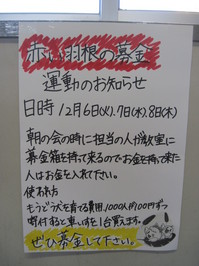 赤い羽根の募金
運動のお知らせ
日時 12月6日(火).7日(水).8日(木)
朝の会の時に担当の人が教室に
募金箱を持って来るのでお金を持って来た
人はお金を入れて下さい。
使われ方
もうどう犬を育てる費用.1000人が100円ずつ
寄付すると車いすを1台買えます。
ぜひ募金して下さい。